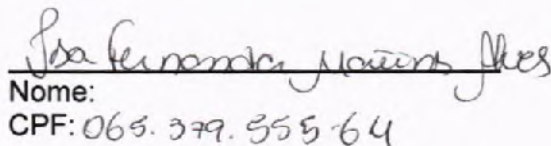 Isa Fernanda Martins Alves
Nome:
CPF: 065.379.555-64